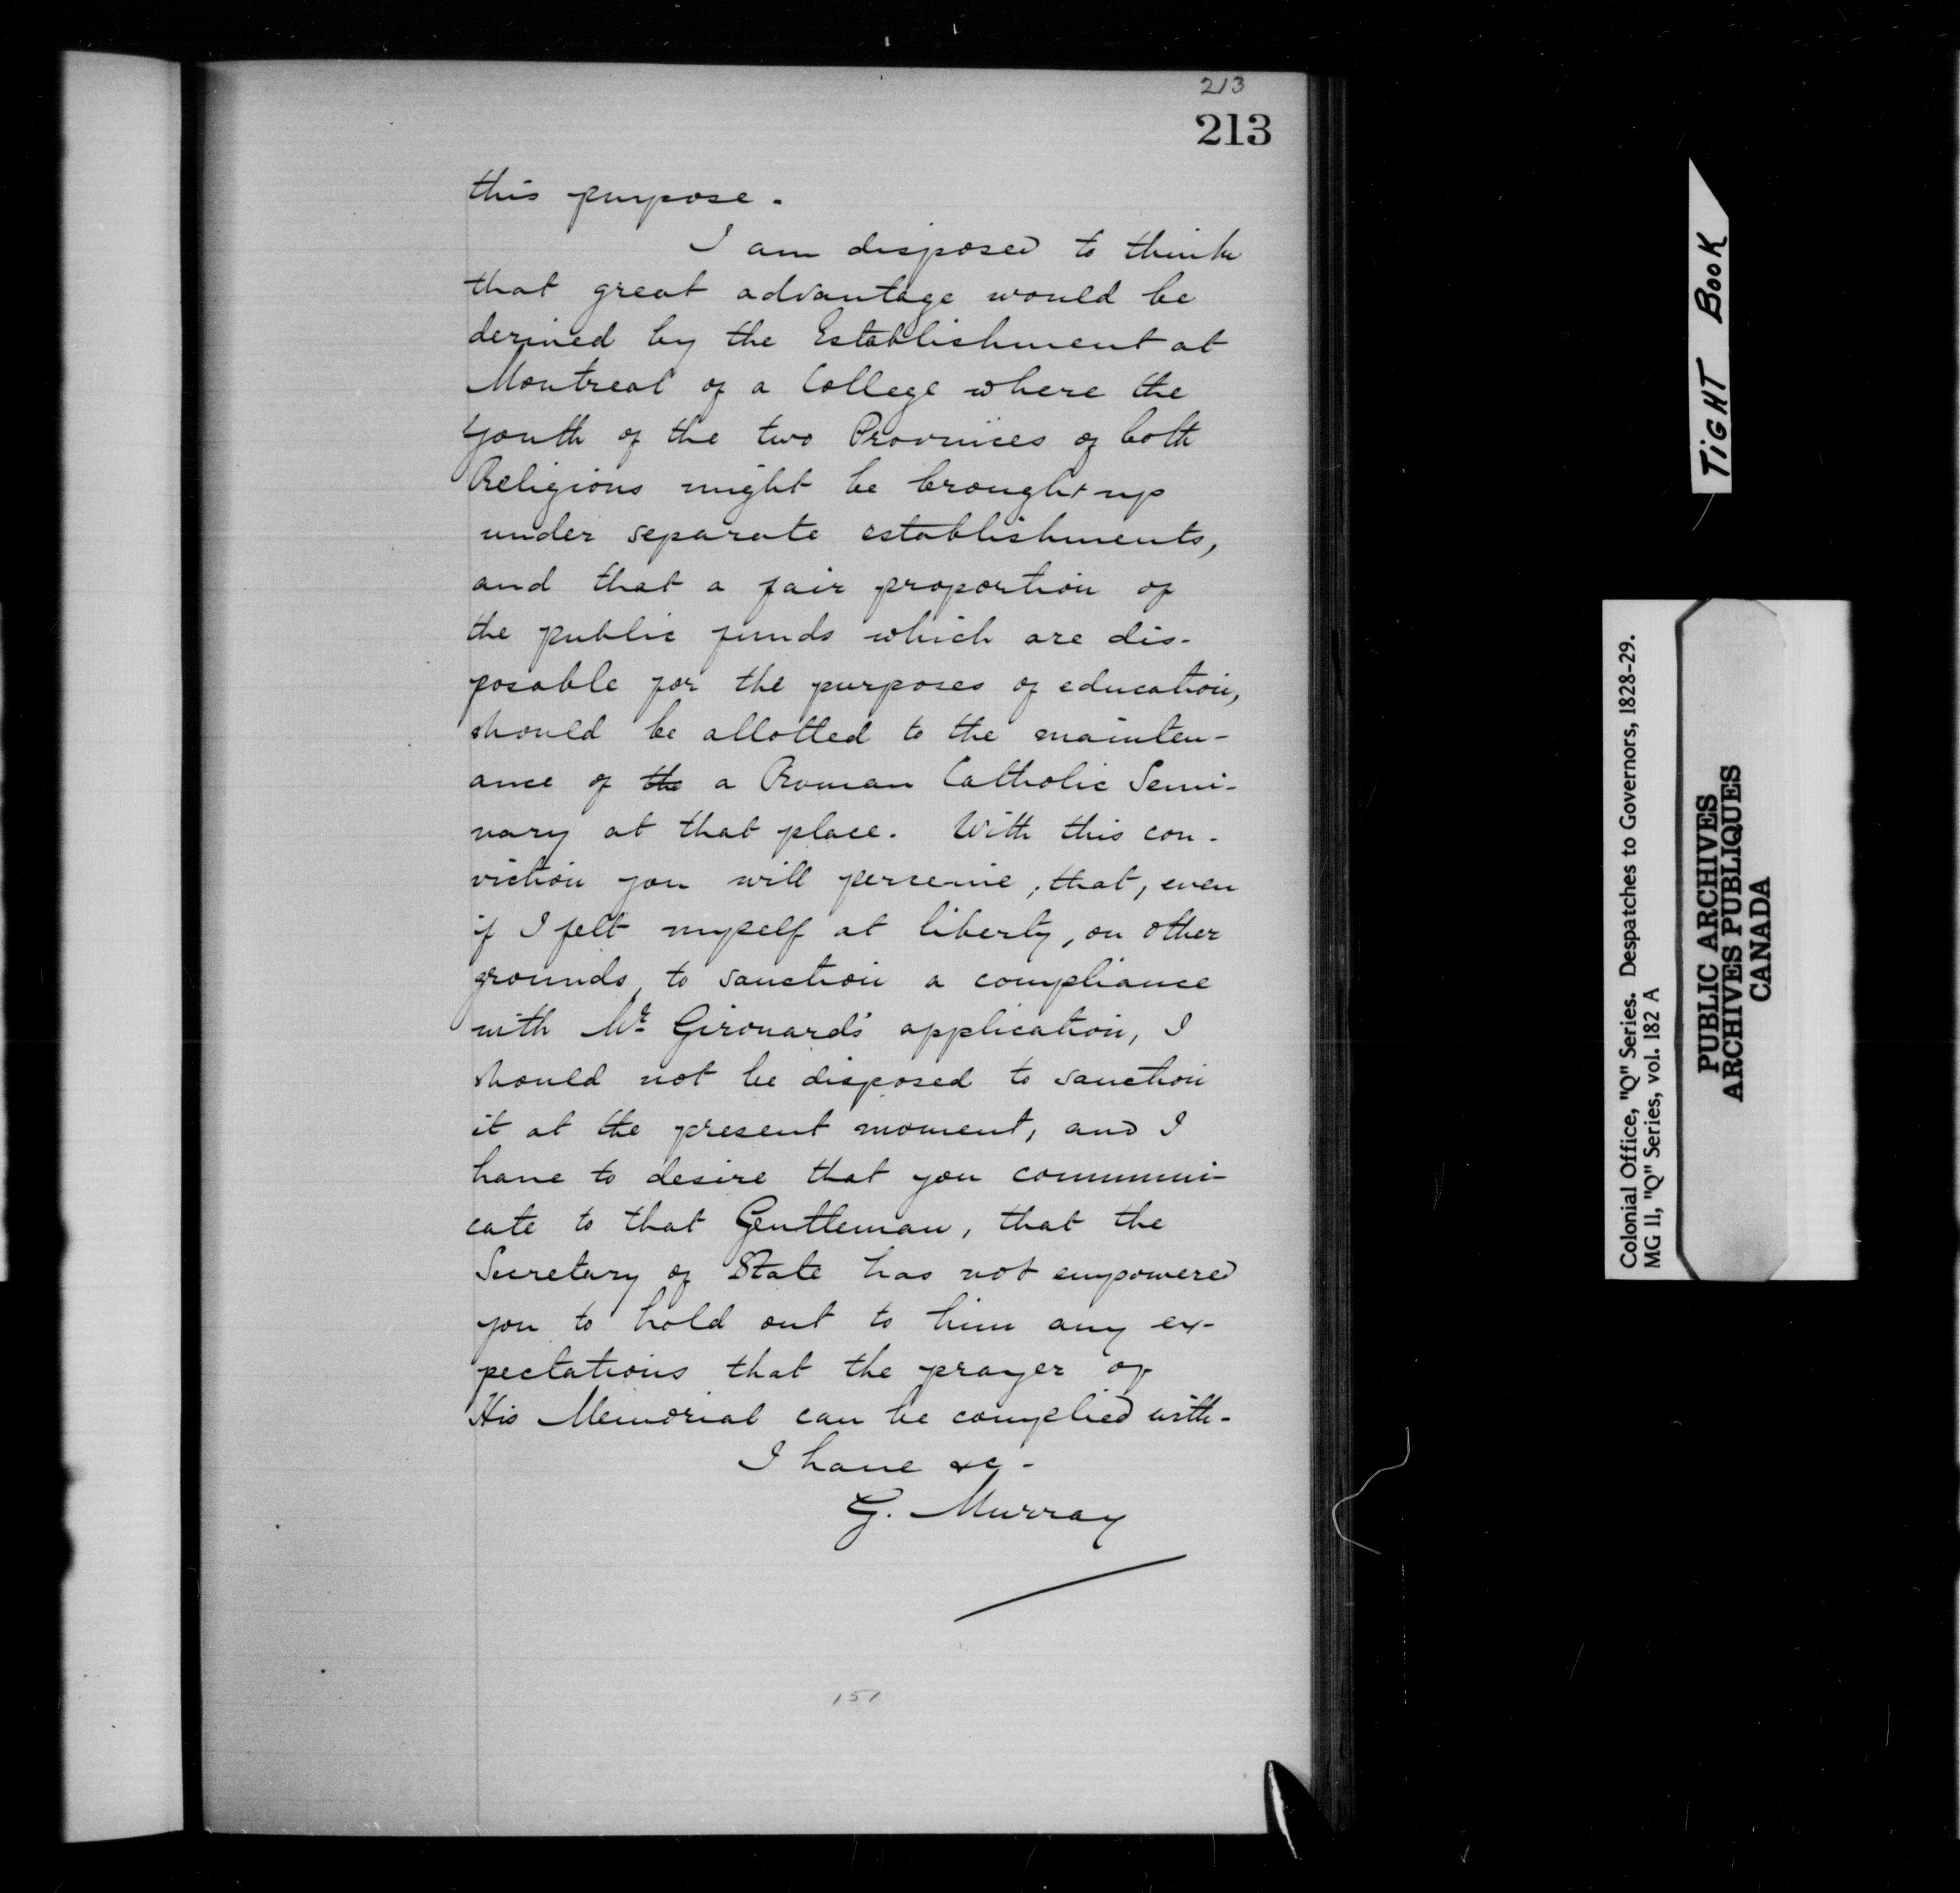 213
213
this purpose.
I am disposed to think
that great advantage would be
derived by the Establishment at
Montreal of a College where the
Youth of the two Provinces of both
Religions might be brought up
under separate establishments,
and that a fair proportion of
the public funds which are dis-
posable for the purposes of education,
should be allotted to the mainten-
ance of the a Roman Catholic Semi-
nary at that place. With this con-
viction you will perceive, that, even
if I felt myself at liberty, on other
grounds, to sanction a compliance
with Mr Girouard's application, I
should not be disposed to sanction
it at the present moment, and I
have to desire that you communi-
cate to that Gentleman, that the
Secretary of State has not empowered
you to hold out to him any ex-
pectations that the prayer of
His Memorial can be complied with.
I have &c -
G. Murray
151
TIGHT BOOK
Colonial Office, "Q" Series. Despatches to Governors, 1828-29.
MG II, "Q" Series, vol. 182 A
PUBLIC ARCHIVES
ARCHIVES PUBLIQUES
CANADA